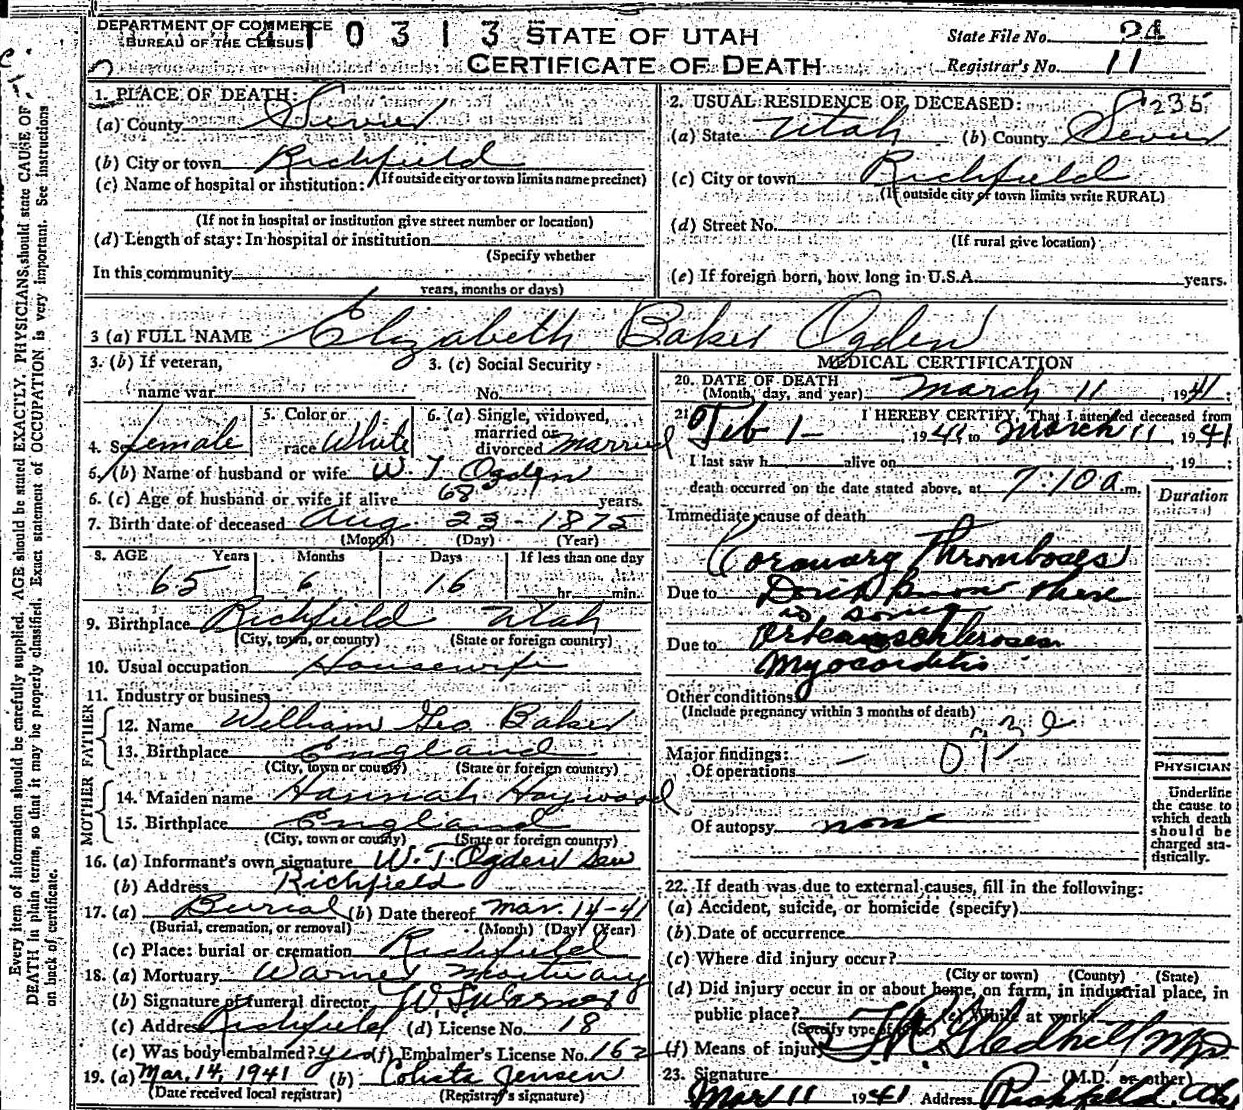 DEPARTMENT OF COMMERCE
BUREAU OF THE CENSUS
10313
STATE OF UTAH
CERTIFICATE OF DEATH
State File No. 24
Registrar's No. 11
1. PLACE OF DEATH:
(a) County Sevier
(b) City or town Richfield
(If outside city or town limits name precinct)
(c) Name of hospital or institution:
(If not in hospital or institution give street number or location)
(d) Length of stay: In hospital or institution
(Specify whether
In this community
years, months or days)
2. USUAL RESIDENCE OF DECEASED: 235
(a) State Utah (b) County Sevier
(c) City or town Richfield
(If outside city or town limits write RURAL)
(d) Street No.
(If rural give location)
(e) If foreign born, how long in U.S.A. years.
3 (a) FULL NAME Elizabeth Baker Ogden
3. (b) If veteran,
name war
3. (c) Social Security
No.
4. Sex female
5. Color or
race White
6. (a) Single, widowed,
married or
divorced married
6. (b) Name of husband or wife W. T. Ogden
6. (c) Age of husband or wife if alive 68 years.
7. Birth date of deceased Aug 23 - 1875
(Month) (Day) (Year)
8. AGE Years Months Days If less than one day
65 6 16 hr. min.
9. Birthplace Richfield Utah
(City, town, or county) (State or foreign country)
10. Usual occupation Housewife
11. Industry or business
FATHER
12. Name William Geo. Baker
13. Birthplace England
(City, town or county) (State or foreign country)
MOTHER
14. Maiden name Hannah Haywood
15. Birthplace England
(City, town or county) (State or foreign country)
16. (a) Informant's own signature W. T. Ogden
(b) Address Richfield
17. (a) Burial (b) Date thereof Mar. 14-41
(Burial, cremation, or removal) (Month) (Day) (Year)
(c) Place: burial or cremation Richfield
18. (a) Mortuary Warner Mortuary
(b) Signature of funeral director Warner
(c) Address Richfield (d) License No. 18
(e) Was body embalmed? yes (f) Embalmer's License No. 162
19. (a) Mar. 14, 1941 (b) Jensen
(Date received local registrar) (Registrar's signature)
MEDICAL CERTIFICATION
20. DATE OF DEATH
(Month, day, and year) March 11 1941
21. I HEREBY CERTIFY, That I attended deceased from
Feb 1- 1941 to March 11, 1941
I last saw h alive on , 19 ;
death occurred on the date stated above, at 7:10 a.m.
Duration
Immediate cause of death
Coronary Thromboses
Due to Don't know there
is some
Due to Arterioschlroses
Myocarditis
Other conditions
(Include pregnancy within 3 months of death)
Major findings:
Of operations
Of autopsy none
PHYSICIAN
Underline
the cause to
which death
should be
charged sta-
tistically.
22. If death was due to external causes, fill in the following:
(a) Accident, suicide, or homicide (specify)
(b) Date of occurrence
(c) Where did injury occur?
(City or town) (County) (State)
(d) Did injury occur in or about home, on farm, in industrial place, in
public place? (e) While at work?
(Specify type of place)
(f) Means of injury
23. Signature T R Gledhill M.D.
(M.D. or other)
Mar 11 1941 Address Richfield, Utah
Every item of information should be carefully supplied. AGE should be stated EXACTLY. PHYSICIANS should state CAUSE OF
DEATH in plain terms, so that it may be properly classified. Exact statement of OCCUPATION is very important. See instructions
on back of certificate.